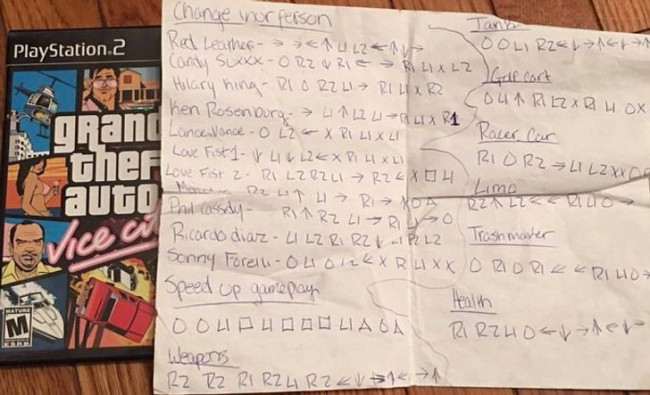 PlayStation 2
grand
thef
auto
Vice
MATURE
M
ESRB
Change your person
Red Leather - → → ← ↑ L1 L2 ← ↑ ↓ →
Candy Suxxx - O R2 ↓ R1 ← → R1 L1 X L2
Hilary King - R1 O R2 L1 → R1 L1 X R2
Ken Rosenburg - → L1 ↑ L2 L1 → R1 L1 X R1
Lance Vance - O L2 ← X R1 L1 X L1
Love Fist 1 - ↓ L1 ↓ L2 ← X R1 L1 X L1
Love Fist 2 - R1 L2 R2 L1 → R2 ← X □ L1
R2 L1 ↑ L1 → R1 → X O △
Phil Cassidy - R1 ↑ R2 L1 → R1 L1 → O
Ricardo diaz - L1 L2 R1 R2 ↓ L1 R2 L2
Sonny Forelli - O L1 O L2 ← X R1 L1 X X
Speed up gameplay
O O L1 □ L1 □ □ □ L1 △ O △
Weapons
R2 R2 R1 R2 L1 R2 ← ↓ → ↑ ← ↓ → ↑
Tank
O O L1 R2 ← ↓ → ↑ ← ↓ → ↑
Golf cart
O L1 ↑ R1 L2 X R1 L1 O X
Racer Car
R1 O R2 → L1 L2 X X
Limo
R2 ↑ L2 ← ← R1 L1 O →
Trashmaster
O R1 O R1 ← ← R1 L1 O →
Health
R1 R2 L1 O ← ↓ → ↑ ← ↓ →